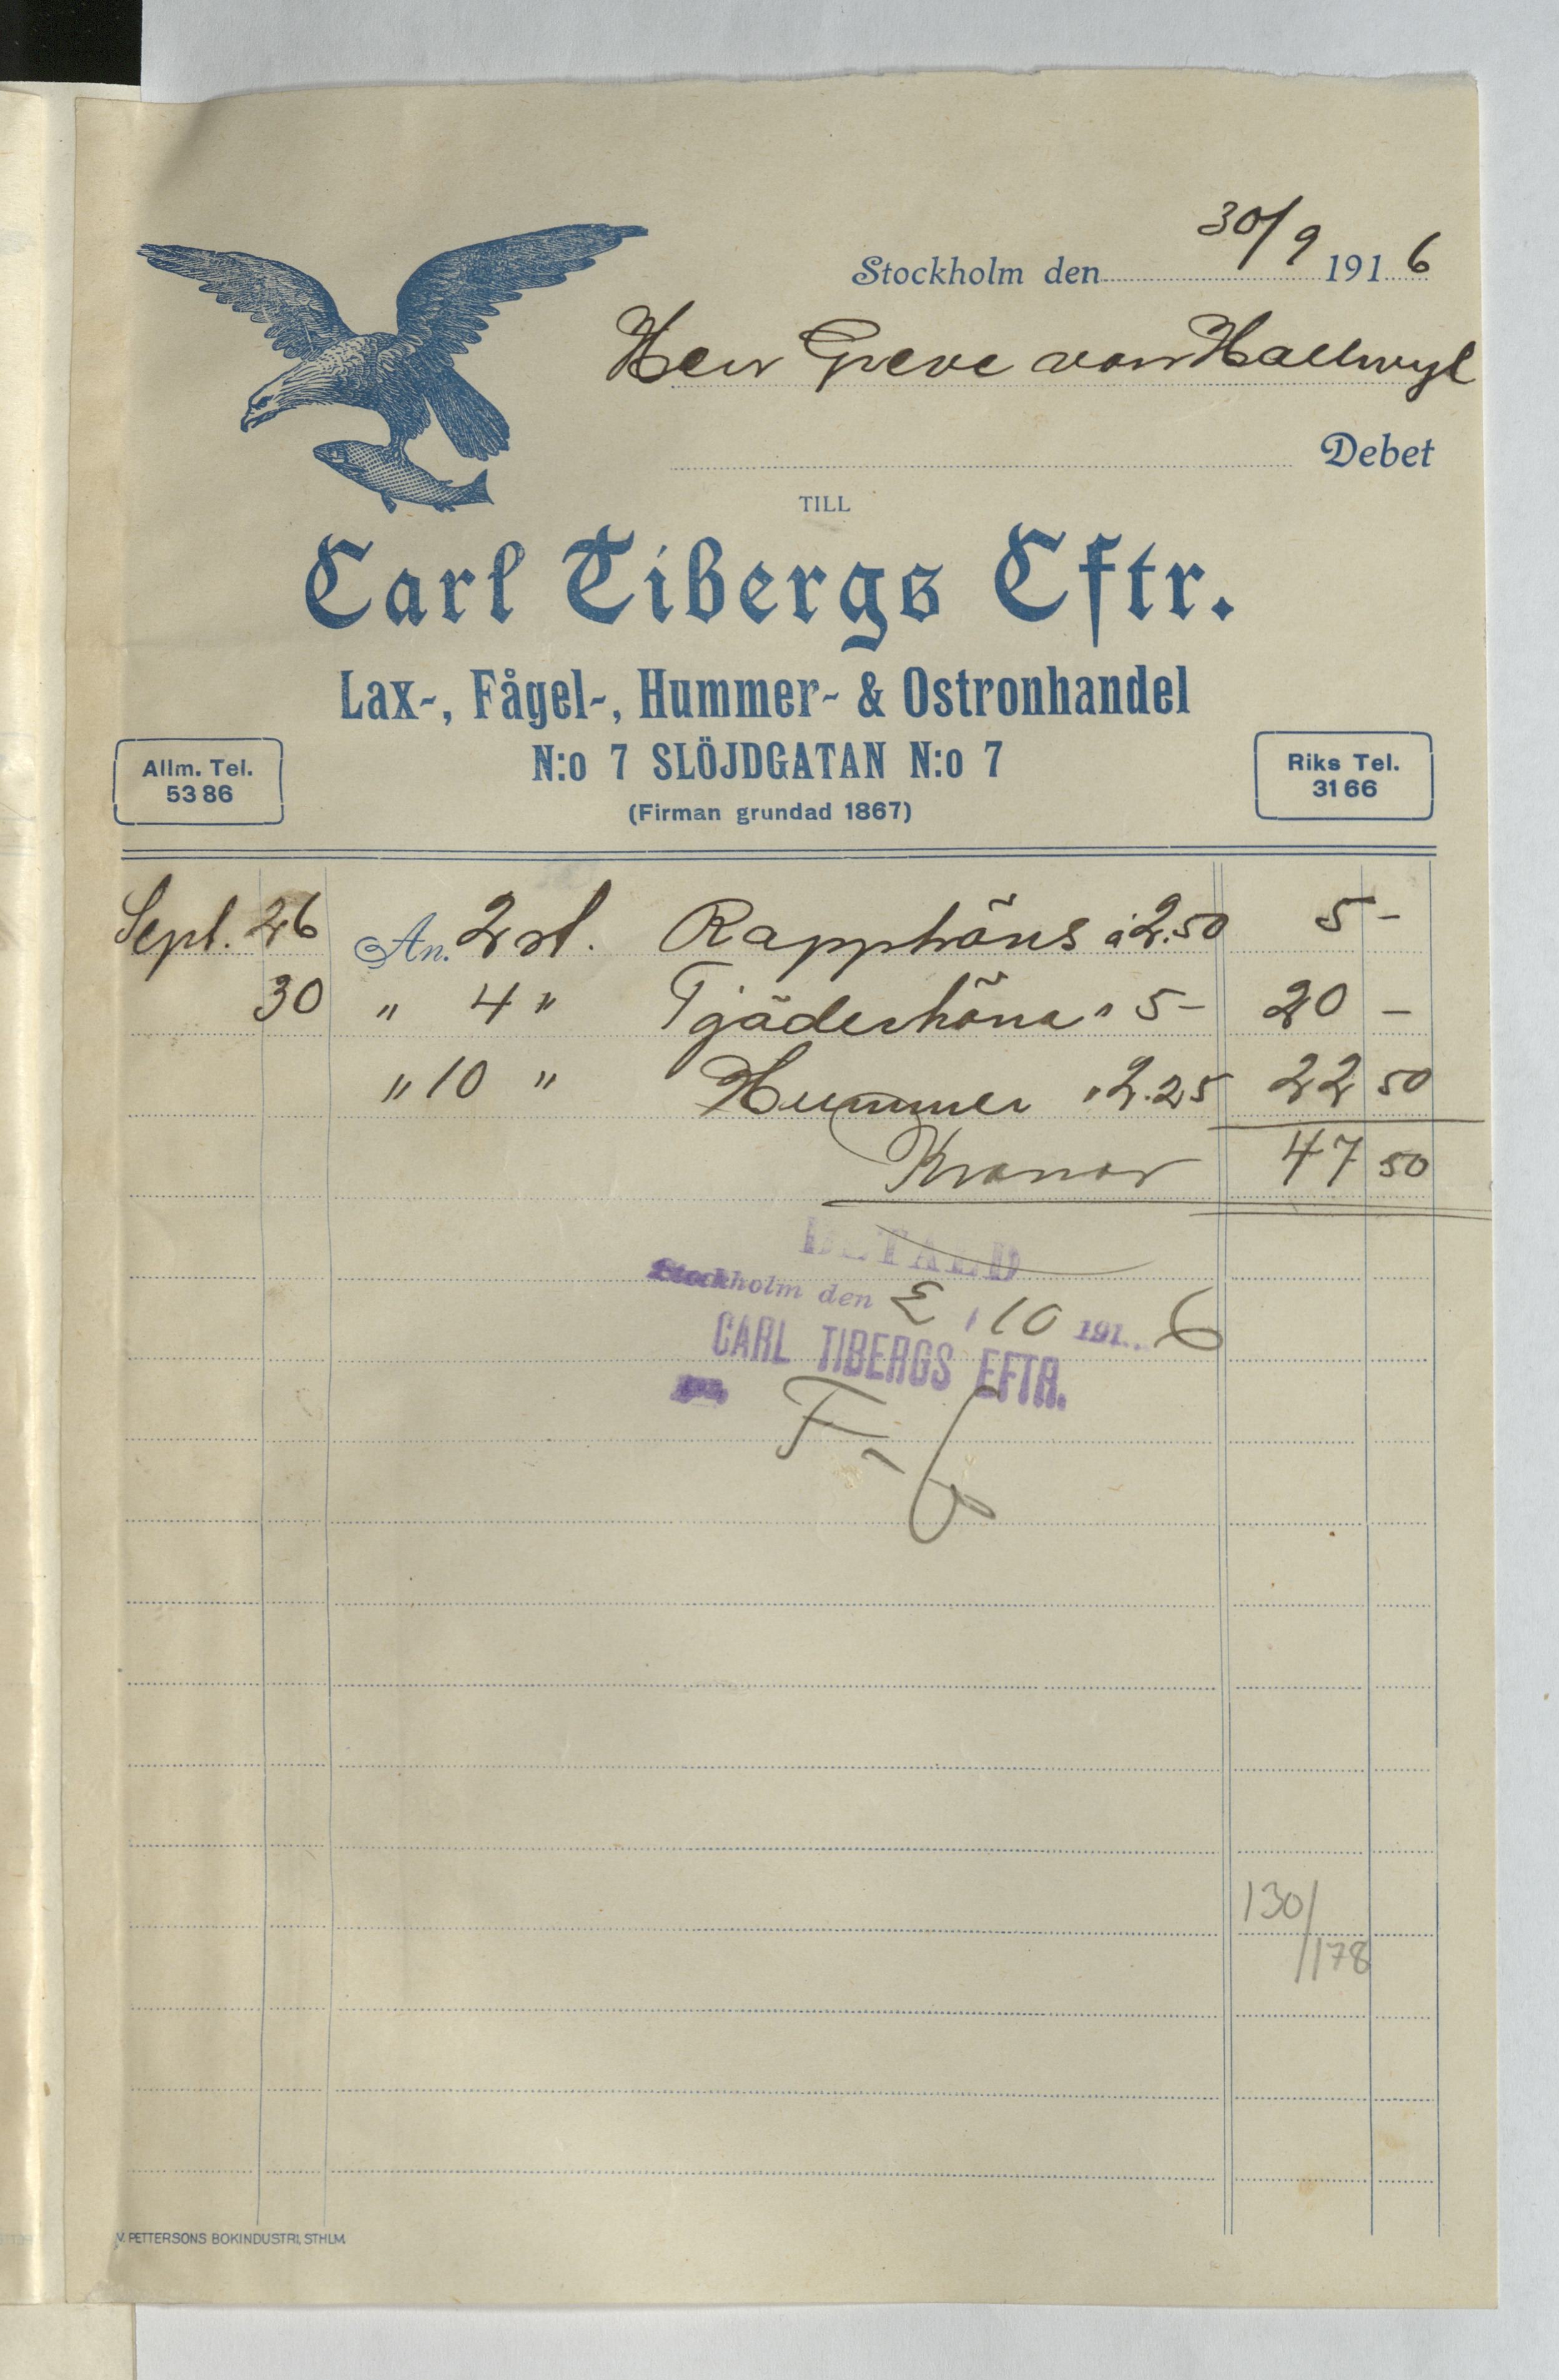 Stockholm den 30/9 1916
Herr Greve von Hallwyl
Debet
TILL
Carl Tibergs Eftr.
Lax-, Fågel-, Hummer- & Ostronhandel
N:o 7 SLÖJDGATAN N:o 7
(Firman grundad 1867)
Allm. Tel.
53 86
Riks Tel.
31 66
Sept. 26 An. 2 st. Rapphöns à 2.50 5 -
30 " 4 " Tjäderhöna " 5- 20 -
" 10 " Hummer " 2.25 22 50
Kronor 47 50
BETALD
Stockholm den 2 / 10 1916
CARL TIBERGS EFTR.
130/
/178
V. PETTERSONS BOKINDUSTRI, STHLM.